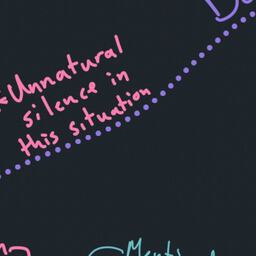 *Unnatural
silence in
this situation